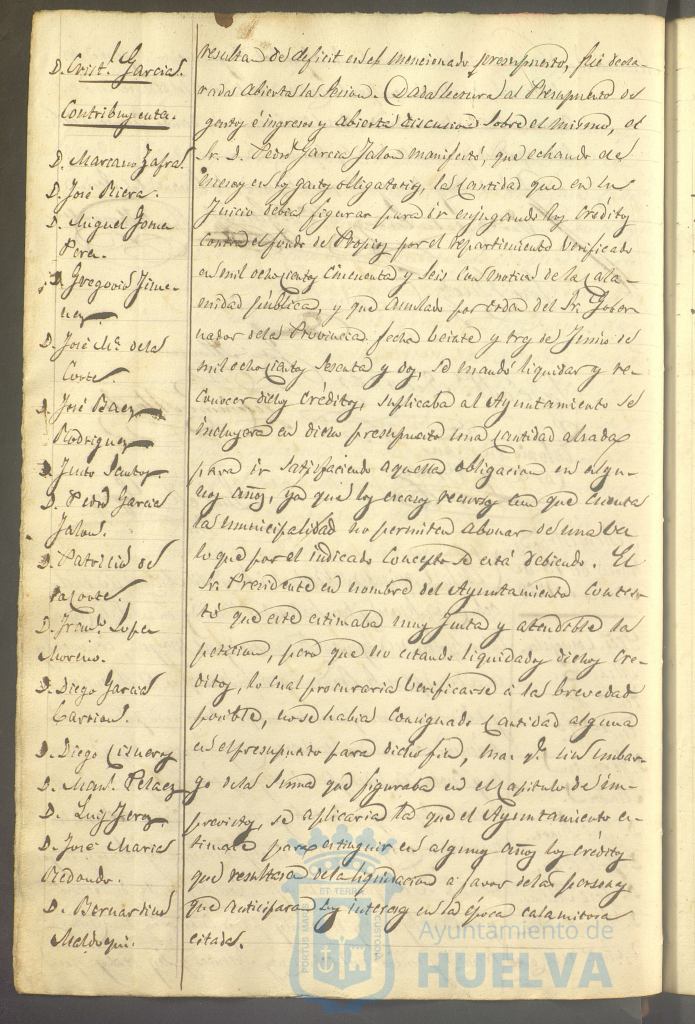 D. Crist.l Garcia.
Contribuyentes.
D. Mariano Zafra.
D. José Riera.
D. Miguel Gome
Pere.
D. Gregorio Jime-
nez
D. José M.a de la
Corte.
D. José Baez
Rodriguez
D. Justo Santos.
D. Pedro Garcia
Jalon.
D. Patricio de
la Corte.
D. Fran.co Lopez
Moreno.
D. Diego Garcia
Carrion.
D. Diego Cisneros
D. Man.l Pelaez
D. Luis Jerez.
D. José Maria
Redondo.
D. Bernardino
resulta de deficit en el mencionado presupuesto, fué decla-
rada abierta la sesion. Dada lectura al Presupuesto de
gastos é ingresos y abierta discusion sobre el mismo, el
Sr. D. Pedro Garcia Jalon manifestó, que echando de
menos en los gastos obligatorios, la cantidad que en su
Juicio debia figurar para ir enjugando los créditos
contra el fondo de Propios por el repartimiento verificado
en mil ochocientos cincuenta y seis con motivo de la cala-
midad pública, y que anulado por orden del Sr. Gober-
nador de la Provincia fecha beinte y tres de Junio de
mil ochocientos sesenta y dos, se mandó liquidar y re-
conocer dichos créditos, suplicaba al Ayuntamiento se
incluyera en dicho presupuesto una cantidad alzada
para ir satisfaciendo aquella obligacion en algu-
nos años, ya que los escasos recursos con que cuenta
la municipalidad no permiten abonar de una vez
lo que por el indicado concepto se está debiendo. El
Sr. Presidente en nombre del Ayuntamiento contes-
tó que este estimaba muy justa y atendible la
peticion, pero que no estando liquidados dichos cre-
ditos, lo cual procuraria verificarse á la brevedad
posible, no se habia consignado cantidad alguna
en el presupuesto para dicho fin, mas q.e sin embar-
go de la suma que figuraba en el Capitulo de im-
previstos, se aplicaria la que el Ayuntamiento es-
timase para extinguir en algunos años los créditos
que resultara de la liquidacion a favor de las personas
que anticiparon sus intereses en la época calamitosa
citada.
Ayuntamiento de
HUELVA